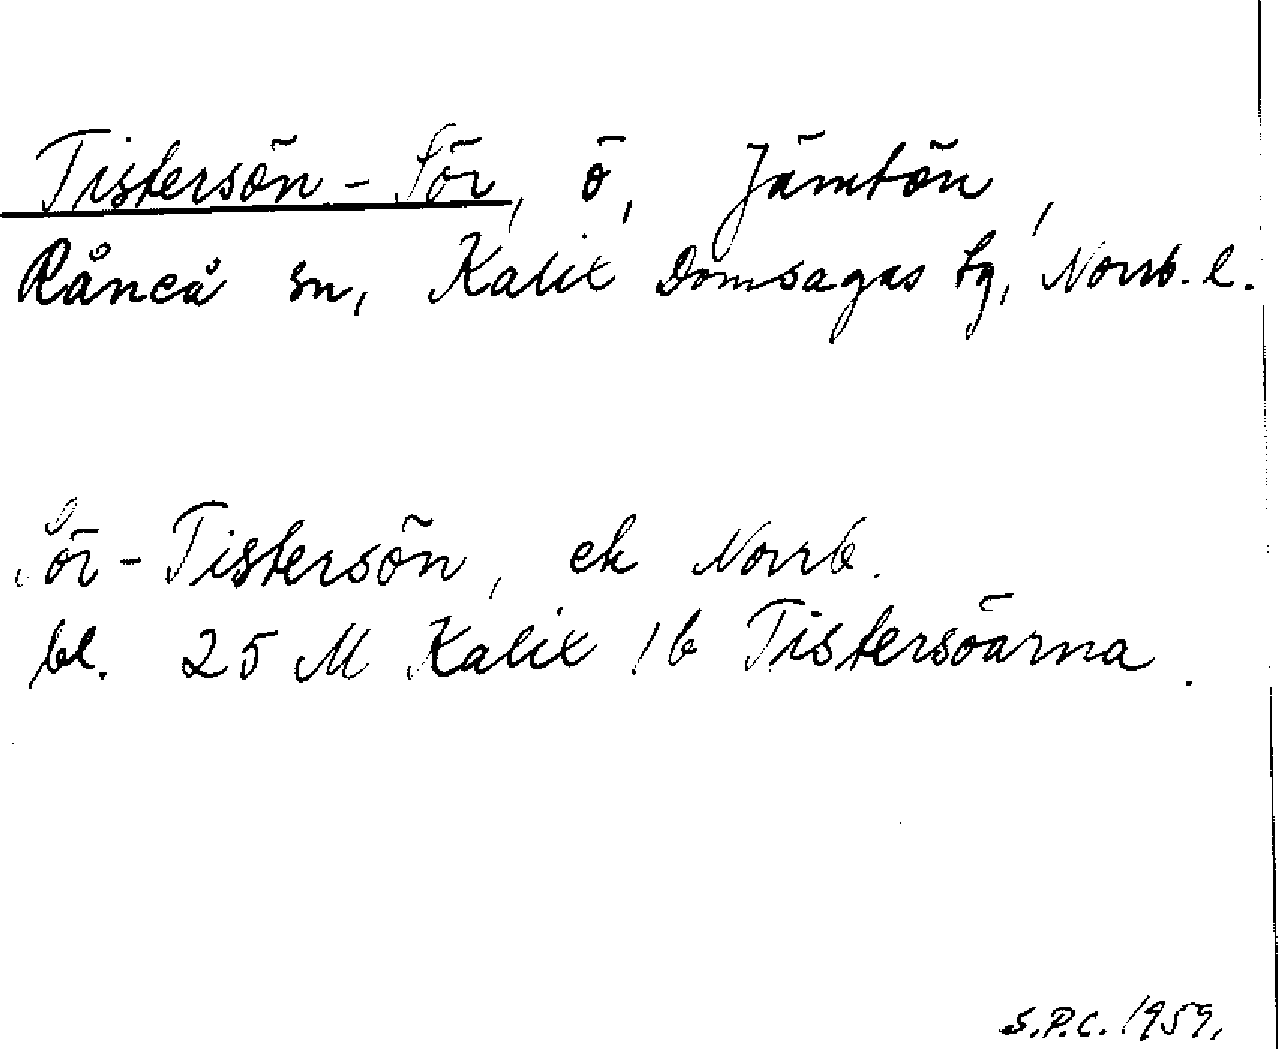 Tistersön - Sör, ö, Jämtön,
Råneå sn, Kalix Domsagas tg, Norrb. l.
Sör - Tistersön, ek Norrb.
bl. 25 M Kalix 1b Tistersöarna.
S.P.C. 1959.